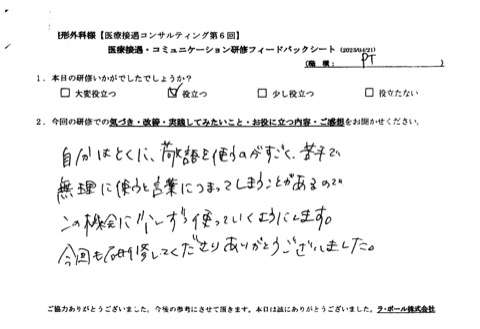 形外科様【医療接遇コンサルティング第6回】
医療接遇・コミュニケーション研修フィードバックシート (2023/04/21)
(職 種: PT )
1. 本日の研修いかがでしたでしょうか?
□ 大変役立つ ☑ 役立つ □ 少し役立つ □ 役立たない
2. 今回の研修での気づき・改善・実践してみたいこと・お役に立つ内容・ご感想をお聞かせください。
自分はとくに、敬語を使うのがすごく、苦手で
無理に使うと言葉につまってしまうことがあるので
この機会に少しずつ使っていくようにします。
今回も研修してくださりありがとうございました。
ご協力ありがとうございました。今後の参考にさせて頂きます。本日は誠にありがとうございました。ラ・ポール株式会社